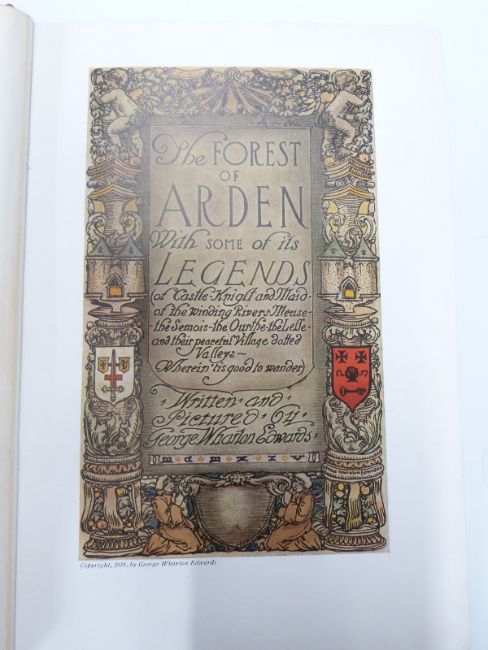 The FOREST
OF
ARDEN
With SOME of its
LEGENDS
of Castle Knight and Maid
of the winding Rivers Meuse-
the Semois-the Ourthe-the Lesse-
and their peaceful Village dotted
Valleys~
Wherein 'tis good to wander
Written·and
Pictured·by
George Wharton Edwards·
Copyright, 1914, by George Wharton Edwards